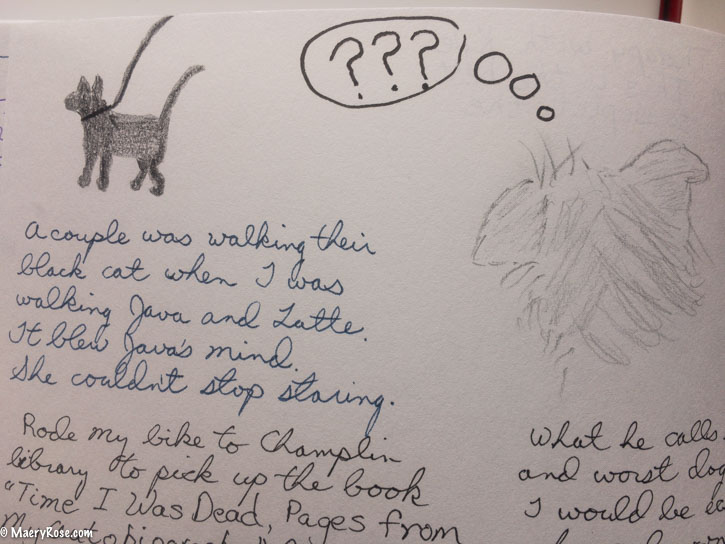 ???
A couple was walking their
black cat when I was
walking Java and Latte.
It blew Java's mind.
She couldn't stop staring.
Rode my bike to Champlin
library to pick up the book
"Time I Was Dead, Pages from
My
What he calls
and worst dog
I would be
© MaeryRose.com